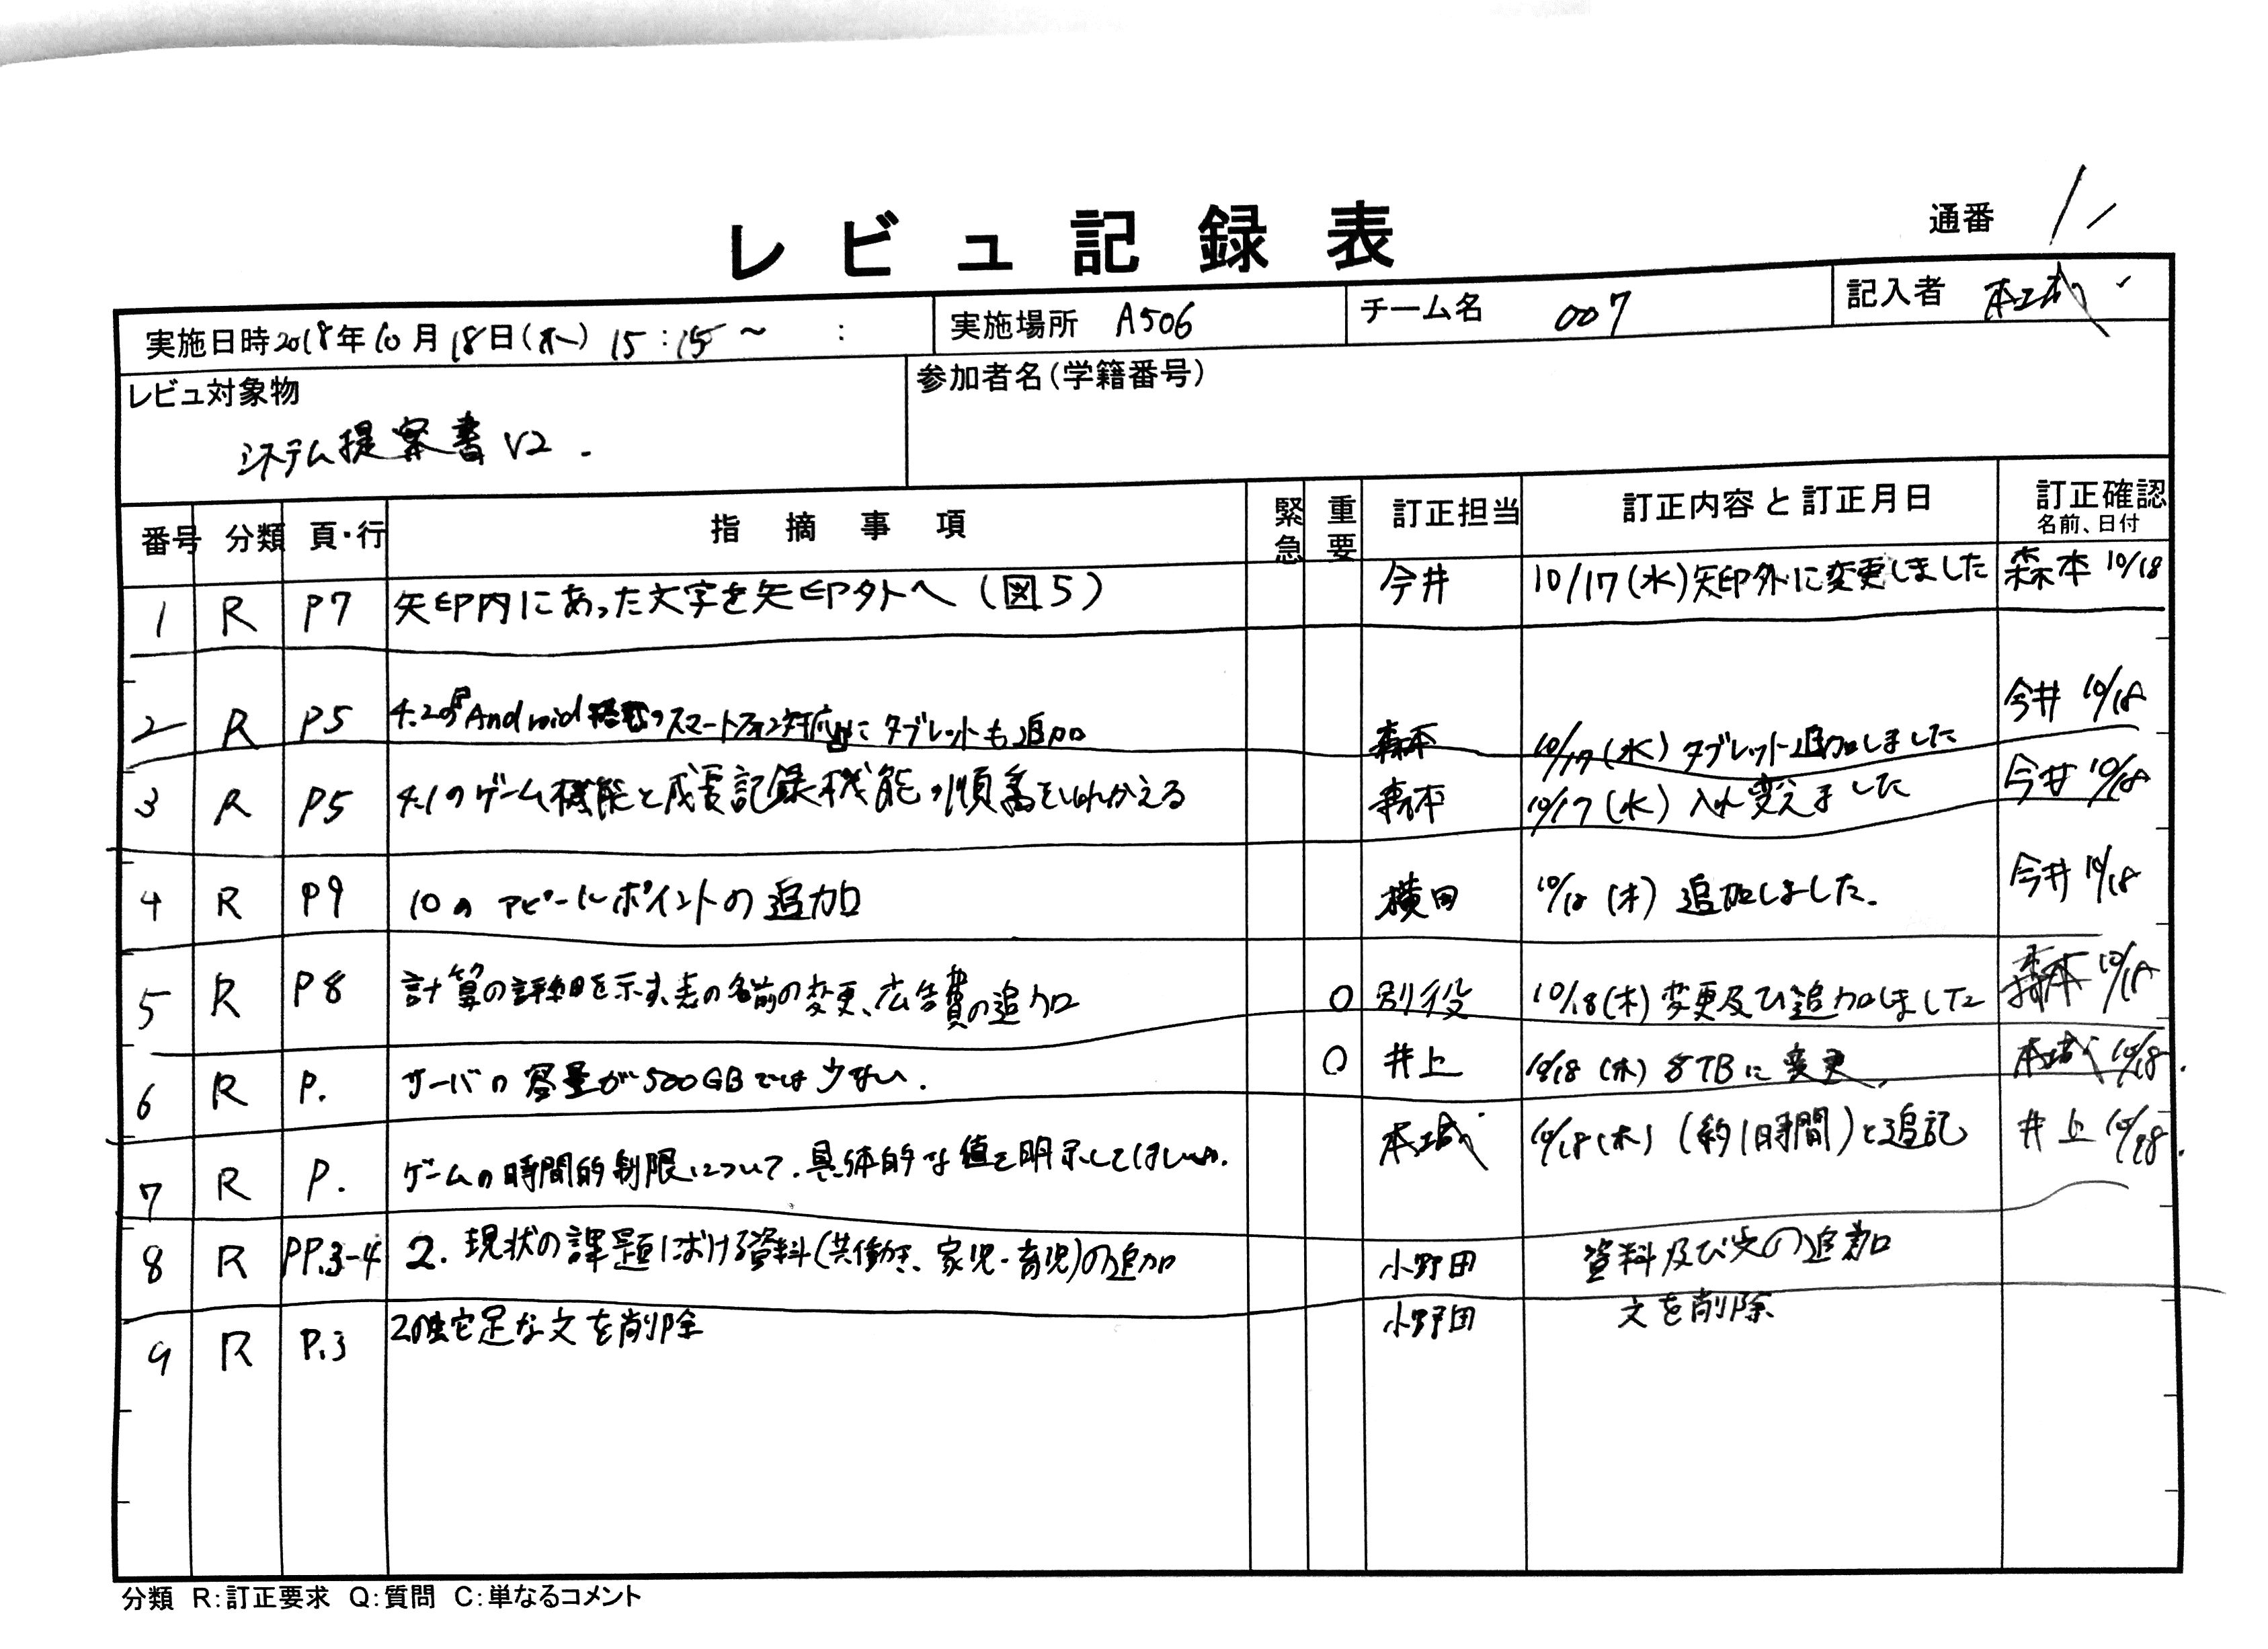 レビュ記録表
通番 1
実施日時 2018年10月18日(木) 15:15～ :
実施場所 A506
チーム名 007
記入者 本城
レビュ対象物
システム提案書 V2.
参加者名(学籍番号)
番号 分類 頁・行 指摘事項 緊急 重要 訂正担当 訂正内容と訂正月日 訂正確認 名前、日付
1 R P7 矢印内にあった文字を矢印外へ(図5) 今井 10/17(水)矢印外に変更しました 森本 10/18
2 R P5 4.2の「Android搭載のスマートフォン対応」にタブレットも追加 森本 10/17(水) タブレット追加しました 今井 10/18
3 R P5 4.1のゲーム機能と成長記録機能の順番を入れかえる 森本 10/17(水) 入れ変えました 今井 10/18
4 R P9 10のアピールポイントの追加 横田 10/18(木) 追加しました. 今井 10/18
5 R P8 計算の詳細を示す、表の名前の変更、広告費の追加 ○ 別役 10/18(木)変更及び追加しました 森本 10/18
6 R P. サーバの容量が500GBでは少ない. ○ 井上 10/18(木) 8TBに変更. 本城 10/18.
7 R P. ゲームの時間的制限について.具体的な値を明示してほしい. 本城 10/18(木)(約1時間)と追記 井上 10/18.
8 R PP.3-4 2. 現状の課題における資料(共働き、家児・育児)の追加 小野田 資料及び文の追加
9 R P.3 2の蛇足な文を削除 小野田 文を削除
分類 R:訂正要求 Q:質問 C:単なるコメント